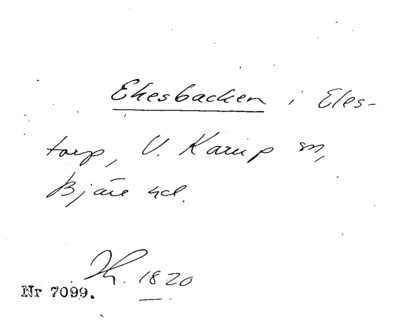 Ekesbacken i Eles-
torp, V. Karup sn,
Bjäre hd.
Kr. 1820
Nr 7099.